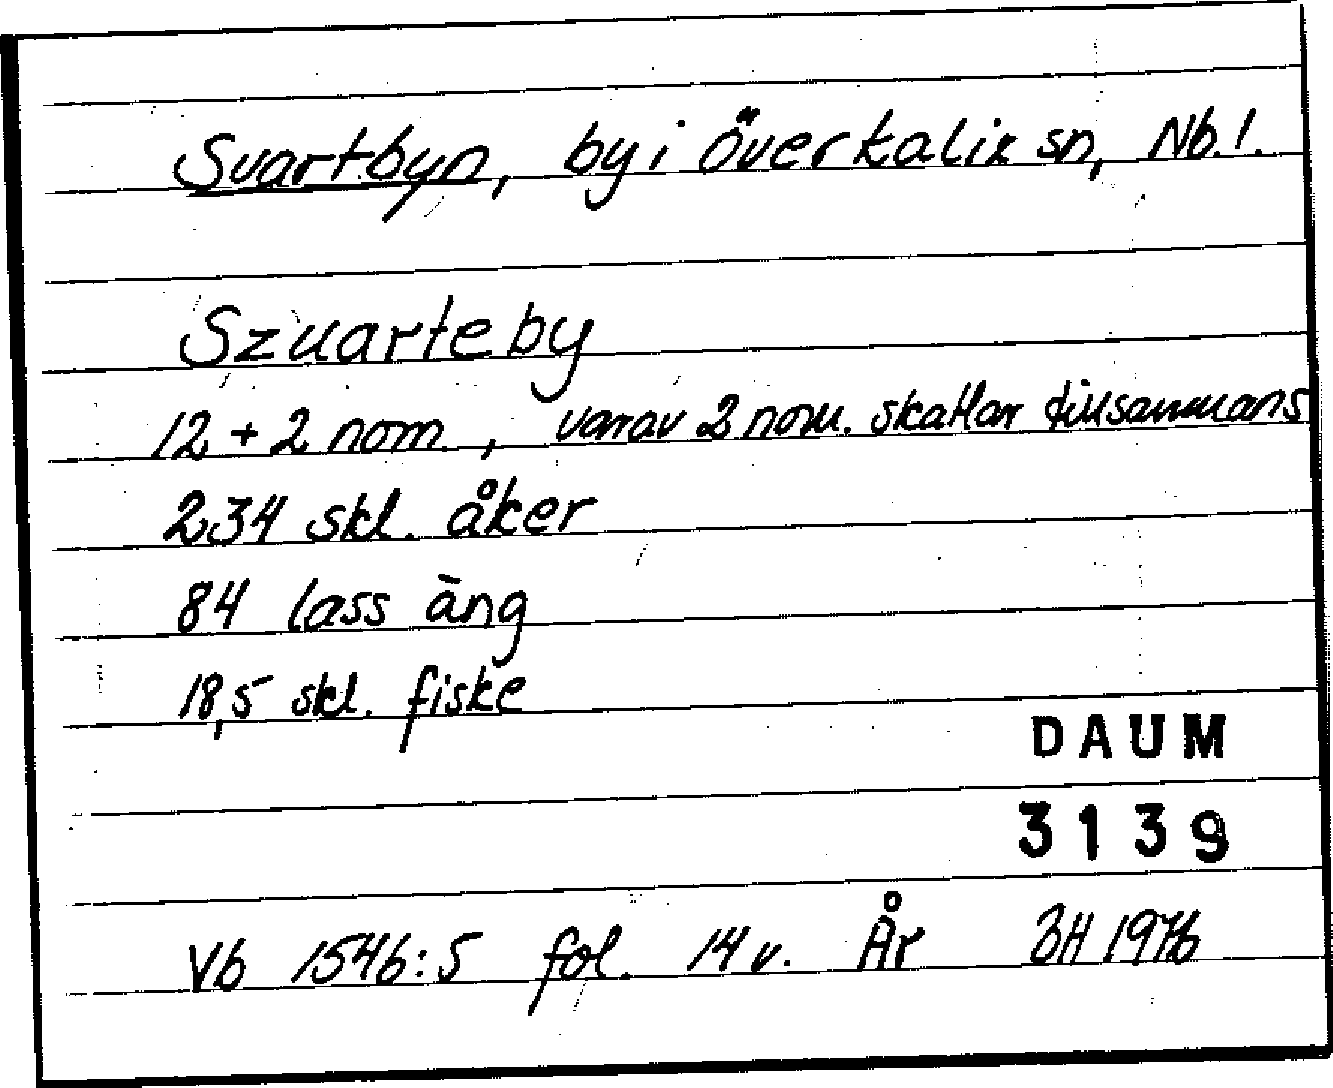 Svartbyn, by i Överkalix sn, Nb. l.
Szuarteby
12 + 2 nom., varav 2 nom. skattar tillsammans
234 skl. åker
84 lass äng
18,5 skl. fiske
DAUM
3139
Vb 1546:5 fol. 14 v. År BH 1976